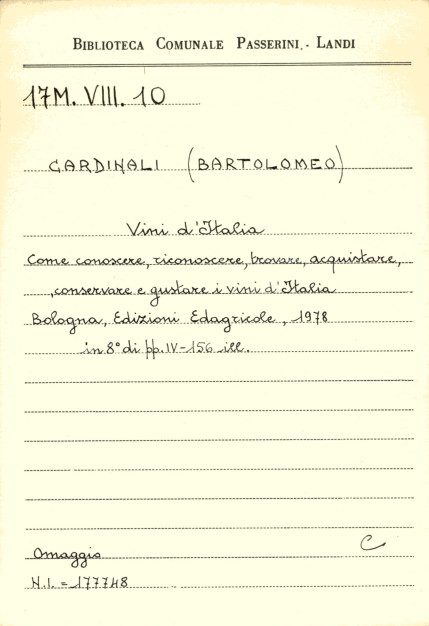 BIBLIOTECA COMUNALE PASSERINI.- LANDI
17M. VIII. 10
CARDINALI (BARTOLOMEO)
Vini d'Italia
Come conoscere, riconoscere, trovare, acquistare,
conservare e gustare i vini d'Italia
Bologna, Edizioni Edagricole, 1978
in 8° di pp. IV-156 ill.
C
Omaggio
N.I. = 177748